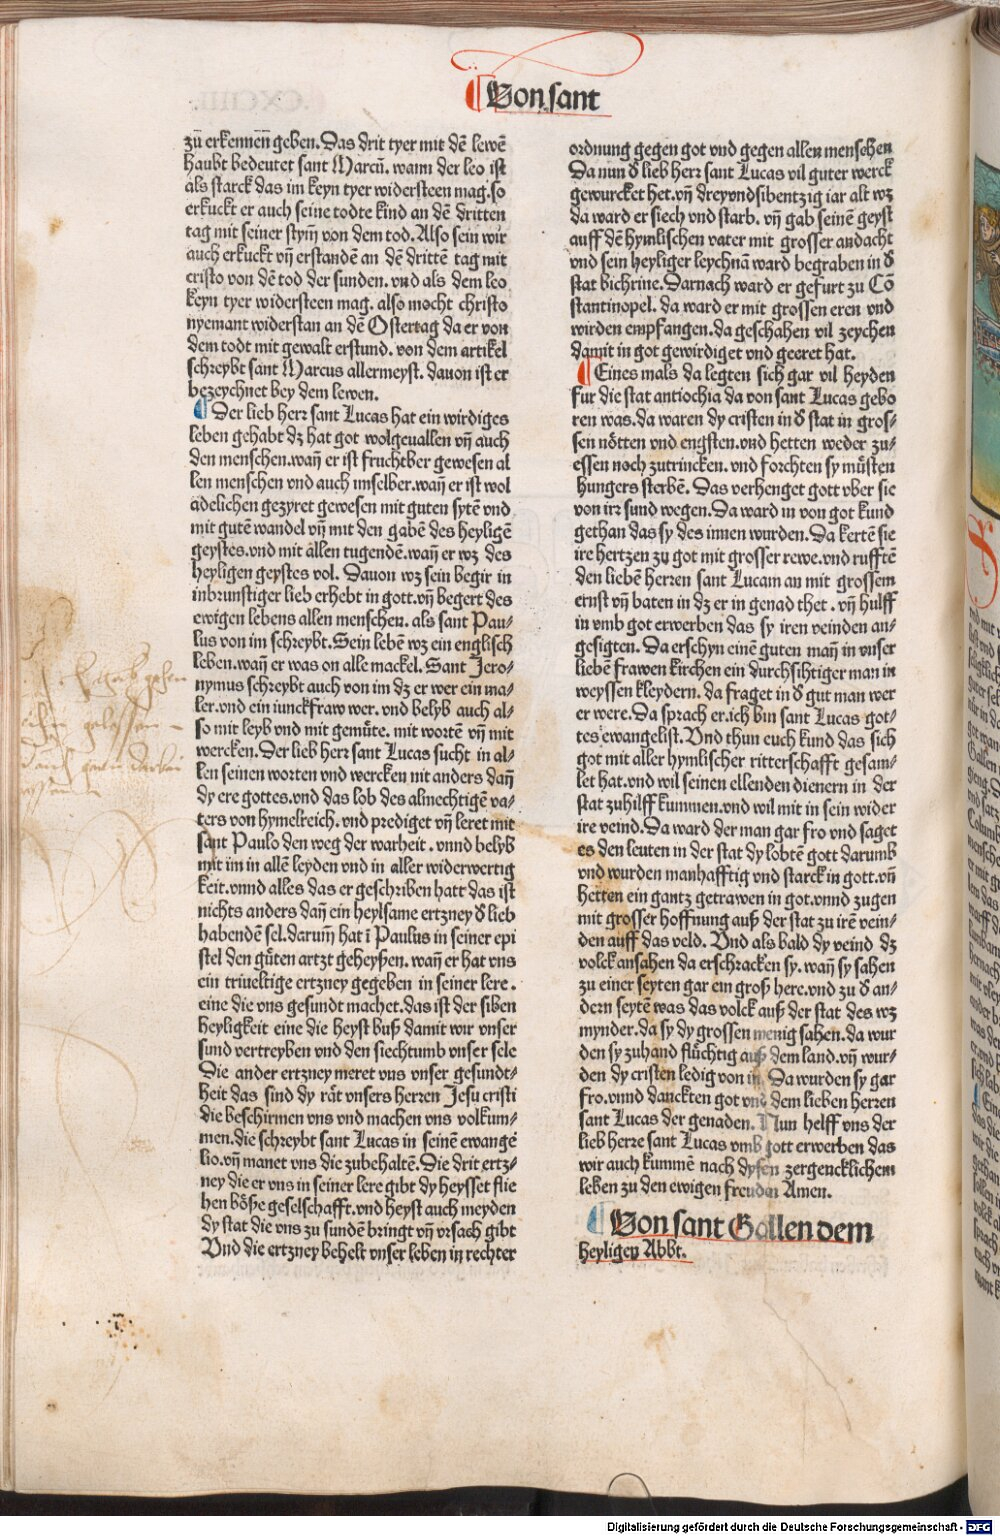 Von sant
zů erkennen̄ geben. Das drit tyer mit dē lewē
haubt bedeutet sant Marcū. wann der leo ist
als starck das im keyn tyer widersteen mag. so
erkuckt er auch seine todte kind an dē dritten
tag mit seiner stym̄ von dem tod. Also sein wir
auch erkuckt vn̄ erstandē an dē drittē tag mit
cristo von dē tod der sunden. vnd als dem leo
keyn tyer widersteen mag. also mocht christo
nyemant widerstan an dē Ostertag da er von
dem todt mit gewalt erstund. von dem artikel
schreybt sant Marcus allermeyst. dauon ist er
bezeychnet bey dem lewen.
Der lieb herr sant Lucas hat ein wirdiges
leben gehabt dz hat got wolgeuallen vn̄ auch
den menschen. wan̄ er ist fruchtber gewesen al
len menschen vnd auch imselber. wan̄ er ist wol
adelichen gezyret gewesen mit guten sytē vnd
mit gutē wandel vn̄ mit den gabē des heyligē
geystes. vnd mit allen tugendē. wan̄ er wz des
heyligen geystes vol. Dauon wz sein begir in
inbrunstiger lieb erhebt in gott. vn̄ begert des
ewigen lebens allen menschen. als sant Pau⸗
lus von im schreybt. Sein lebē wz ein englisch
leben. wan̄ er was on alle mackel. Sant Jero⸗
nymus schreybt auch von im dz er wer ein ma⸗
ler. vnd ein iunckfraw wer. vnd belyb auch al⸗
so mit leyb vnd mit gemüte. mit wortē vn̄ mit
wercken. Der lieb herr sant Lucas sucht in al⸗
len seinen worten vnd wercken nit anders dan̄
dy ere gottes. vnd das lob des almechtigē va⸗
ters von hymelreich. vnd prediget vn̄ leret mit
sant Paulo den weg der warheit. vnnd belyb
mit im in allē leyden vnd in aller widerwertig
keit. vnnd alles das er geschriben hatt das ist
nichts anders dan̄ ein heylsame ertzney d lieb
habendē sel. darum̄ hat ī Paulus in seiner epi
stel den gůten artzt geheyßen. wan̄ er hat vns
ein triueltige ertzney gegeben in seiner lere.
eine die vns gesundt machet. das ist der siben
heyligkeit eine die heyst buß damit wir vnser
sund vertreyben vnd den siechtumb vnser sele
Die ander ertzney meret vns vnser gesundt⸗
heit das sind dy rät vnsers herren Jesu cristi
die beschirmen vns vnd machen vns volkum⸗
men. die schreybt sant Lucas in seinē ewange
lio. vn̄ manet vns die zubehaltē. Die drit ertz⸗
ney die er vns in seiner lere gibt dy heysset flie
hen böße geselschafft. vnd heyst auch meyden
dy stat die vns zu sundē bringt vn̄ vrsach gibt
Vnd die ertzney behelt vnser leben in rechter
ordnung gegen got vnd gegen allen menschen
Da nun d lieb herr sant Lucas vil guter werck
gewurcket het. vn̄ dreyvndsibentzig iar alt wz
da ward er siech vnd starb. vn̄ gab seinē geyst
auff dē hymlischen vater mit grosser andacht
vnd sein heyliger leychnā ward begraben in d
stat bichrine. Darnach ward er gefurt zu Cō
stantinopel. da ward er mit grossen eren vnd
wirden empfangen. da geschahen vil zeychen
damit in got gewirdiget vnd geeret hat.
Eines mals da legten sich gar vil heyden
fur die stat antiochia da von sant Lucas gebo
ren was. da waren dy cristen in d stat in gros⸗
sen nötten vnd engsten. vnd hetten weder zu⸗
essen noch zutrincken. vnd forchten sy müsten
hungers sterbē. Das verhenget gott vber sie
von irr sund wegen. Da ward in von got kund
gethan das sy des innen wurden. Da kertē sie
ire hertzen zu got mit grosser rewe. vnd rufftē
den liebē herren sant Lucam an mit grossem
ernst vn̄ baten in dz er in genad thet. vn̄ hulff
in vmb got erwerben das sy iren veinden an⸗
gesigten. Da erschyn einē guten man̄ in vnser
liebē frawen kirchen ein durchsihtiger man in
weyssen kleydern. da fraget in d gut man wer
er were. Da sprach er. ich bin sant Lucas got⸗
tes ewangelist. Vnd thun euch kund das sich
got mit aller hymlischer ritterschafft gesam⸗
let hat. vnd wil seinen ellenden dienern in der
stat zuhilff kummen. vnd wil mit in sein wider
ire veind. Da ward der man gar fro vnd saget
es den leuten in der stat dy lobtē gott darumb
vnd wurden manhafftig vnd starck in gott. vn̄
hetten ein gantz getrawen in got. vnnd zugen
mit grosser hoffnung auß der stat zu irē vein⸗
den auff das veld. Vnd als bald dy veind dz
volck ansahen da erschracken sy. wan̄ sy sahen
zu einer seyten gar ein groß here. vnd zu d an⸗
dern seytē was das volck auß der stat des wz
mynder. da sy dy grossen menig sahen. da wur
den sy zuhand flüchtig auß dem land. vn̄ wur⸗
den dy cristen ledig von in. Da wurden sy gar
fro. vnnd danckten got vnd dem lieben herren
sant Lucas der genaden. Nun helff vns der
lieb herre sant Lucas vmb gott erwerben das
wir auch kummē nach dysen zergencklichem
leben zu den ewigen freuden Amen.
Von sant Gallen dem
heyligen Abbt.
Digitalisierung gefördert durch die Deutsche Forschungsgemeinschaft - DFG